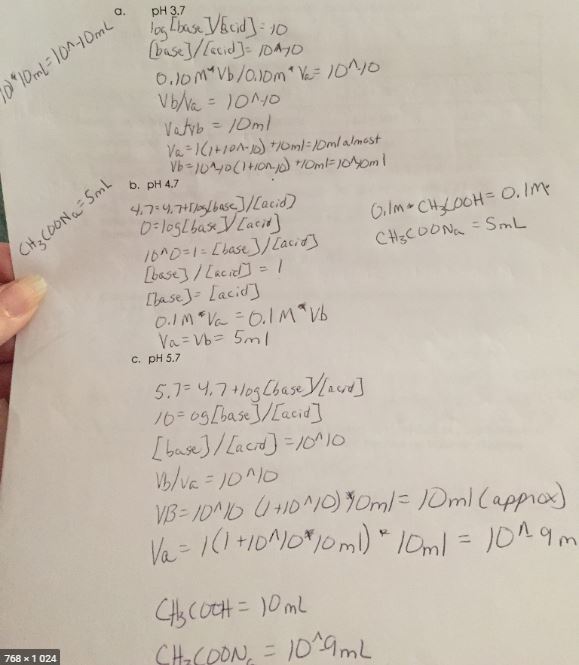 a. pH 3.7
log[base]/[acid] = 10
[base]/[acid] = 10^-10
0.10M*Vb/0.10M*Va = 10^-10
Vb/Va = 10^-10
Va+Vb = 10ml
Va = 1(1+10^-10) *10ml = 10ml almost
Vb = 10^-10(1+10^-10) *10ml = 10^-10ml
10*10mL = 10^-10mL
b. pH 4.7
4.7 = 4.7+[log[base]/[acid]
0 = log[base]/[acid]
10^0 = 1 = [base]/[acid]
[base]/[acid] = 1
[base] = [acid]
0.1M*Va = 0.1M*Vb
Va = Vb = 5ml
CH3COONa = 5mL
0.1M* CH3COOH = 0.1M*
CH3COONa = 5mL
c. pH 5.7
5.7 = 4.7 + log[base]/[acid]
10 = og[base]/[acid]
[base]/[acid] = 10^10
Vb/Va = 10^10
VB = 10^10 (1+10^10)*10ml = 10ml (approx)
Va = 1(1+10^10*10ml) * 10ml = 10^-9m
CH3COOH = 10mL
CH3COONa = 10^-9mL
768 × 1 024